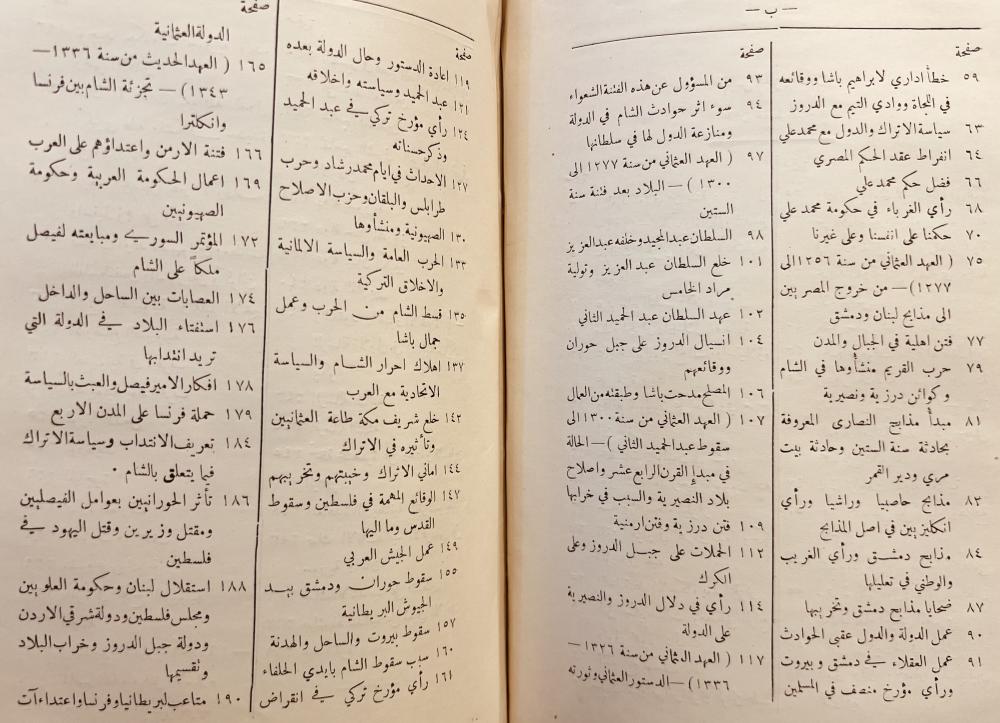 — ب —
صفحة
٥٩ خطأ اداري لابراهيم باشا ووقائعه
في اللجاة ووادي التيم مع الدروز
٦٣ سياسة الاتراك والدول مع محمد علي
٦٤ انفراط عقد الحكم المصري
٦٦ فضل حكم محمد علي
٦٨ رأي الغرباء في حكومة محمد علي
٧٠ حكمنا على انفسنا وعلى غيرنا
٧٥ ( العهد العثماني من سنة ١٢٥٦ الى
١٢٧٧ ) — من خروج المصريين
الى مذابح لبنان ودمشق
٧٧ فتن اهلية في الجبال والمدن
٧٩ حرب القريم منشأوها في الشام
وكوائن درزية ونصيرية
٨١ مبدأ مذابح النصارى المعروفة
بحادثة سنة الستين وحادثة بيت
مري ودير القمر
٨٣ مذابح حاصبيا وراشيا ورأي
انكليزيين في اصل المذابح
٨٤ مذابح دمشق ورأي الغريب
والوطني في تعليلها
٨٧ ضحايا مذابح دمشق وتخريبها
٩٠ عمل الدولة والدول عقبى الحوادث
٩١ عمل العقلاء في دمشق وبيروت
ورأي مؤرخ منصف في المسلمين
صفحة
٩٣ من المسؤول عن هذه الفتنة الشعواء
٩٤ سوء اثر حوادث الشام في الدولة
ومنازعة الدول لها في سلطانها
٩٧ ( العهد العثماني من سنة ١٢٧٧ الى
١٣٠٠ ) — البلاد بعد فتنة سنة
الستين
٩٨ السلطان عبد المجيد وخلفه عبد العزيز
١٠١ خلع السلطان عبد العزيز وتولية
مراد الخامس
١٠٢ عهد السلطان عبد الحميد الثاني
١٠٤ انسيال الدروز على جبل حوران
ووقائعهم
١٠٦ المصلح مدحت باشا وطبقته من العمال
١٠٧ ( العهد العثماني من سنة ١٣٠٠ الى
سقوط عبد الحميد الثاني ) — الحالة
في مبدإ القرن الرابع عشر واصلاح
بلاد النصيرية والسبب في خرابها
١٠٩ فتن درزية وفتن ارمنية
١١٢ الحملات على جبل الدروز وعلى
الكرك
١١٤ رأي في دلال الدروز والنصيرية
على الدولة
١١٧ ( العهد العثماني من سنة ١٣٢٦ —
١٣٣٦ ) — الدستور العثماني وثورته
صفحة
١١٩ اعادة الدستور وحال الدولة بعده
١٢١ عبد الحميد وسياسته واخلاقه
١٢٤ رأي مؤرخ تركي في عبد الحميد
وذكر حسناته
١٢٧ الاحداث في ايام محمد رشاد وحرب
طرابلس والبلقان وحزب الاصلاح
١٣٠ الصهيونية ومنشأوها
١٣٣ الحرب العامة والسياسة الالمانية
والاخلاق التركية
١٣٥ قسط الشام من الحرب وعمل
جمال باشا
١٣٧ اهلاك احرار الشام والسياسة
الاتحادية مع العرب
١٤٢ خلع شريف مكة طاعة العثمانيين
وتأثيره في الاتراك
١٤٤ اماني الاتراك وخيبتهم وتخريبهم
١٤٧ الوقائع المهمة في فلسطين وسقوط
القدس وما اليها
١٤٩ عمل الجيش العربي
١٥٥ سقوط حوران ودمشق بيد
الجيوش البريطانية
١٥٧ سقوط بيروت والساحل والهدنة
١٦٠ سبب سقوط الشام بايدي الحلفاء
١٦١ رأي مؤرخ تركي في انقراض
صفحة
الدولة العثمانية
١٦٥ ( العهد الحديث من سنة ١٣٣٦ —
١٣٤٣ ) — تجزئة الشام بين فرنسا
وانكلترا
١٦٦ فتنة الارمن واعتداؤهم على العرب
١٦٩ اعمال الحكومة العربية وحكومة
الصهيونيين
١٧٢ المؤتمر السوري ومبايعته لفيصل
ملكاً على الشام
١٧٤ العصابات بين الساحل والداخل
١٧٦ استفتاء البلاد في الدولة التي
تريد انتدابها
١٧٨ افكار الامير فيصل والعبث بالسياسة
١٧٩ حملة فرنسا على المدن الاربع
١٨٤ تعريف الانتداب وسياسة الاتراك
فيما يتعلق بالشام .
١٨٦ تأثر الحورانيين بعوامل الفيصليين
ومقتل وزيرين وقتل اليهود في
فلسطين
١٨٨ استقلال لبنان وحكومة العلويين
ومجلس فلسطين ودولة شرقي الاردن
ودولة جبل الدروز وخراب البلاد
وتقسيمها
١٩٠ متاعب لبريطانيا وفرنسا واعتداءآت